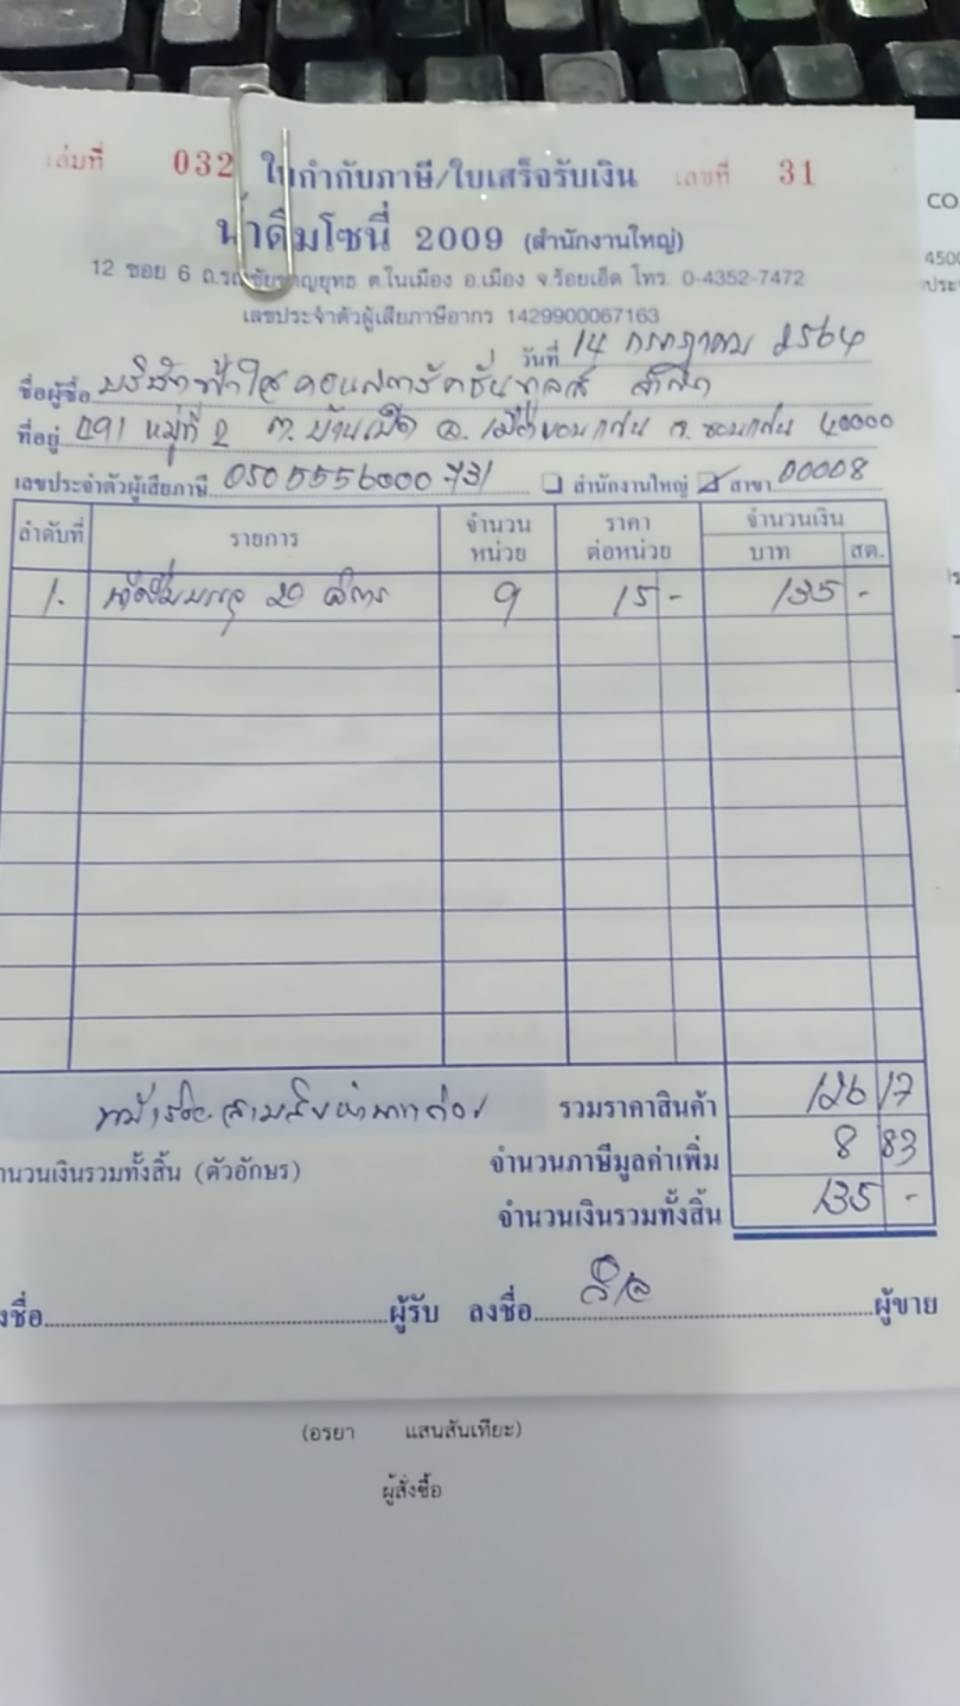 เล่มที่ 032 ใบกำกับภาษี/ใบเสร็จรับเงิน เลขที่ 31
น้ำดื่มโซนี่ 2009 (สำนักงานใหญ่)
12 ซอย 6 ถ.รณชัยชาญยุทธ ต.ในเมือง อ.เมือง จ.ร้อยเอ็ด โทร. 0-4352-7472
เลขประจำตัวผู้เสียภาษีอากร 1429900067163
วันที่ 14 กรกฎาคม 2564
ชื่อผู้ซื้อ บริษัท ฟ้าใส คอนสตรัคชั่น ทูลส์ จำกัด
ที่อยู่ 491 หมู่ที่ 2 ต. บ้านเป็ด อ. เมืองขอนแก่น จ. ขอนแก่น 40000
เลขประจำตัวผู้เสียภาษี 0505556000731 สำนักงานใหญ่ สาขา 00008
ลำดับที่ รายการ จำนวนหน่วย ราคาต่อหน่วย จำนวนเงิน
บาท สต.
1. น้ำดื่มบรรจุ 20 ลิตร 9 15 - 135 -
รวมราคาสินค้า 126 17
จำนวนเงินรวมทั้งสิ้น (ตัวอักษร) จำนวนภาษีมูลค่าเพิ่ม 8 83
จำนวนเงินรวมทั้งสิ้น 135 -
งชื่อ ผู้รับ ลงชื่อ ผู้ขาย
(อรยา แสนสันเทียะ)
ผู้สั่งซื้อ
CO
4500